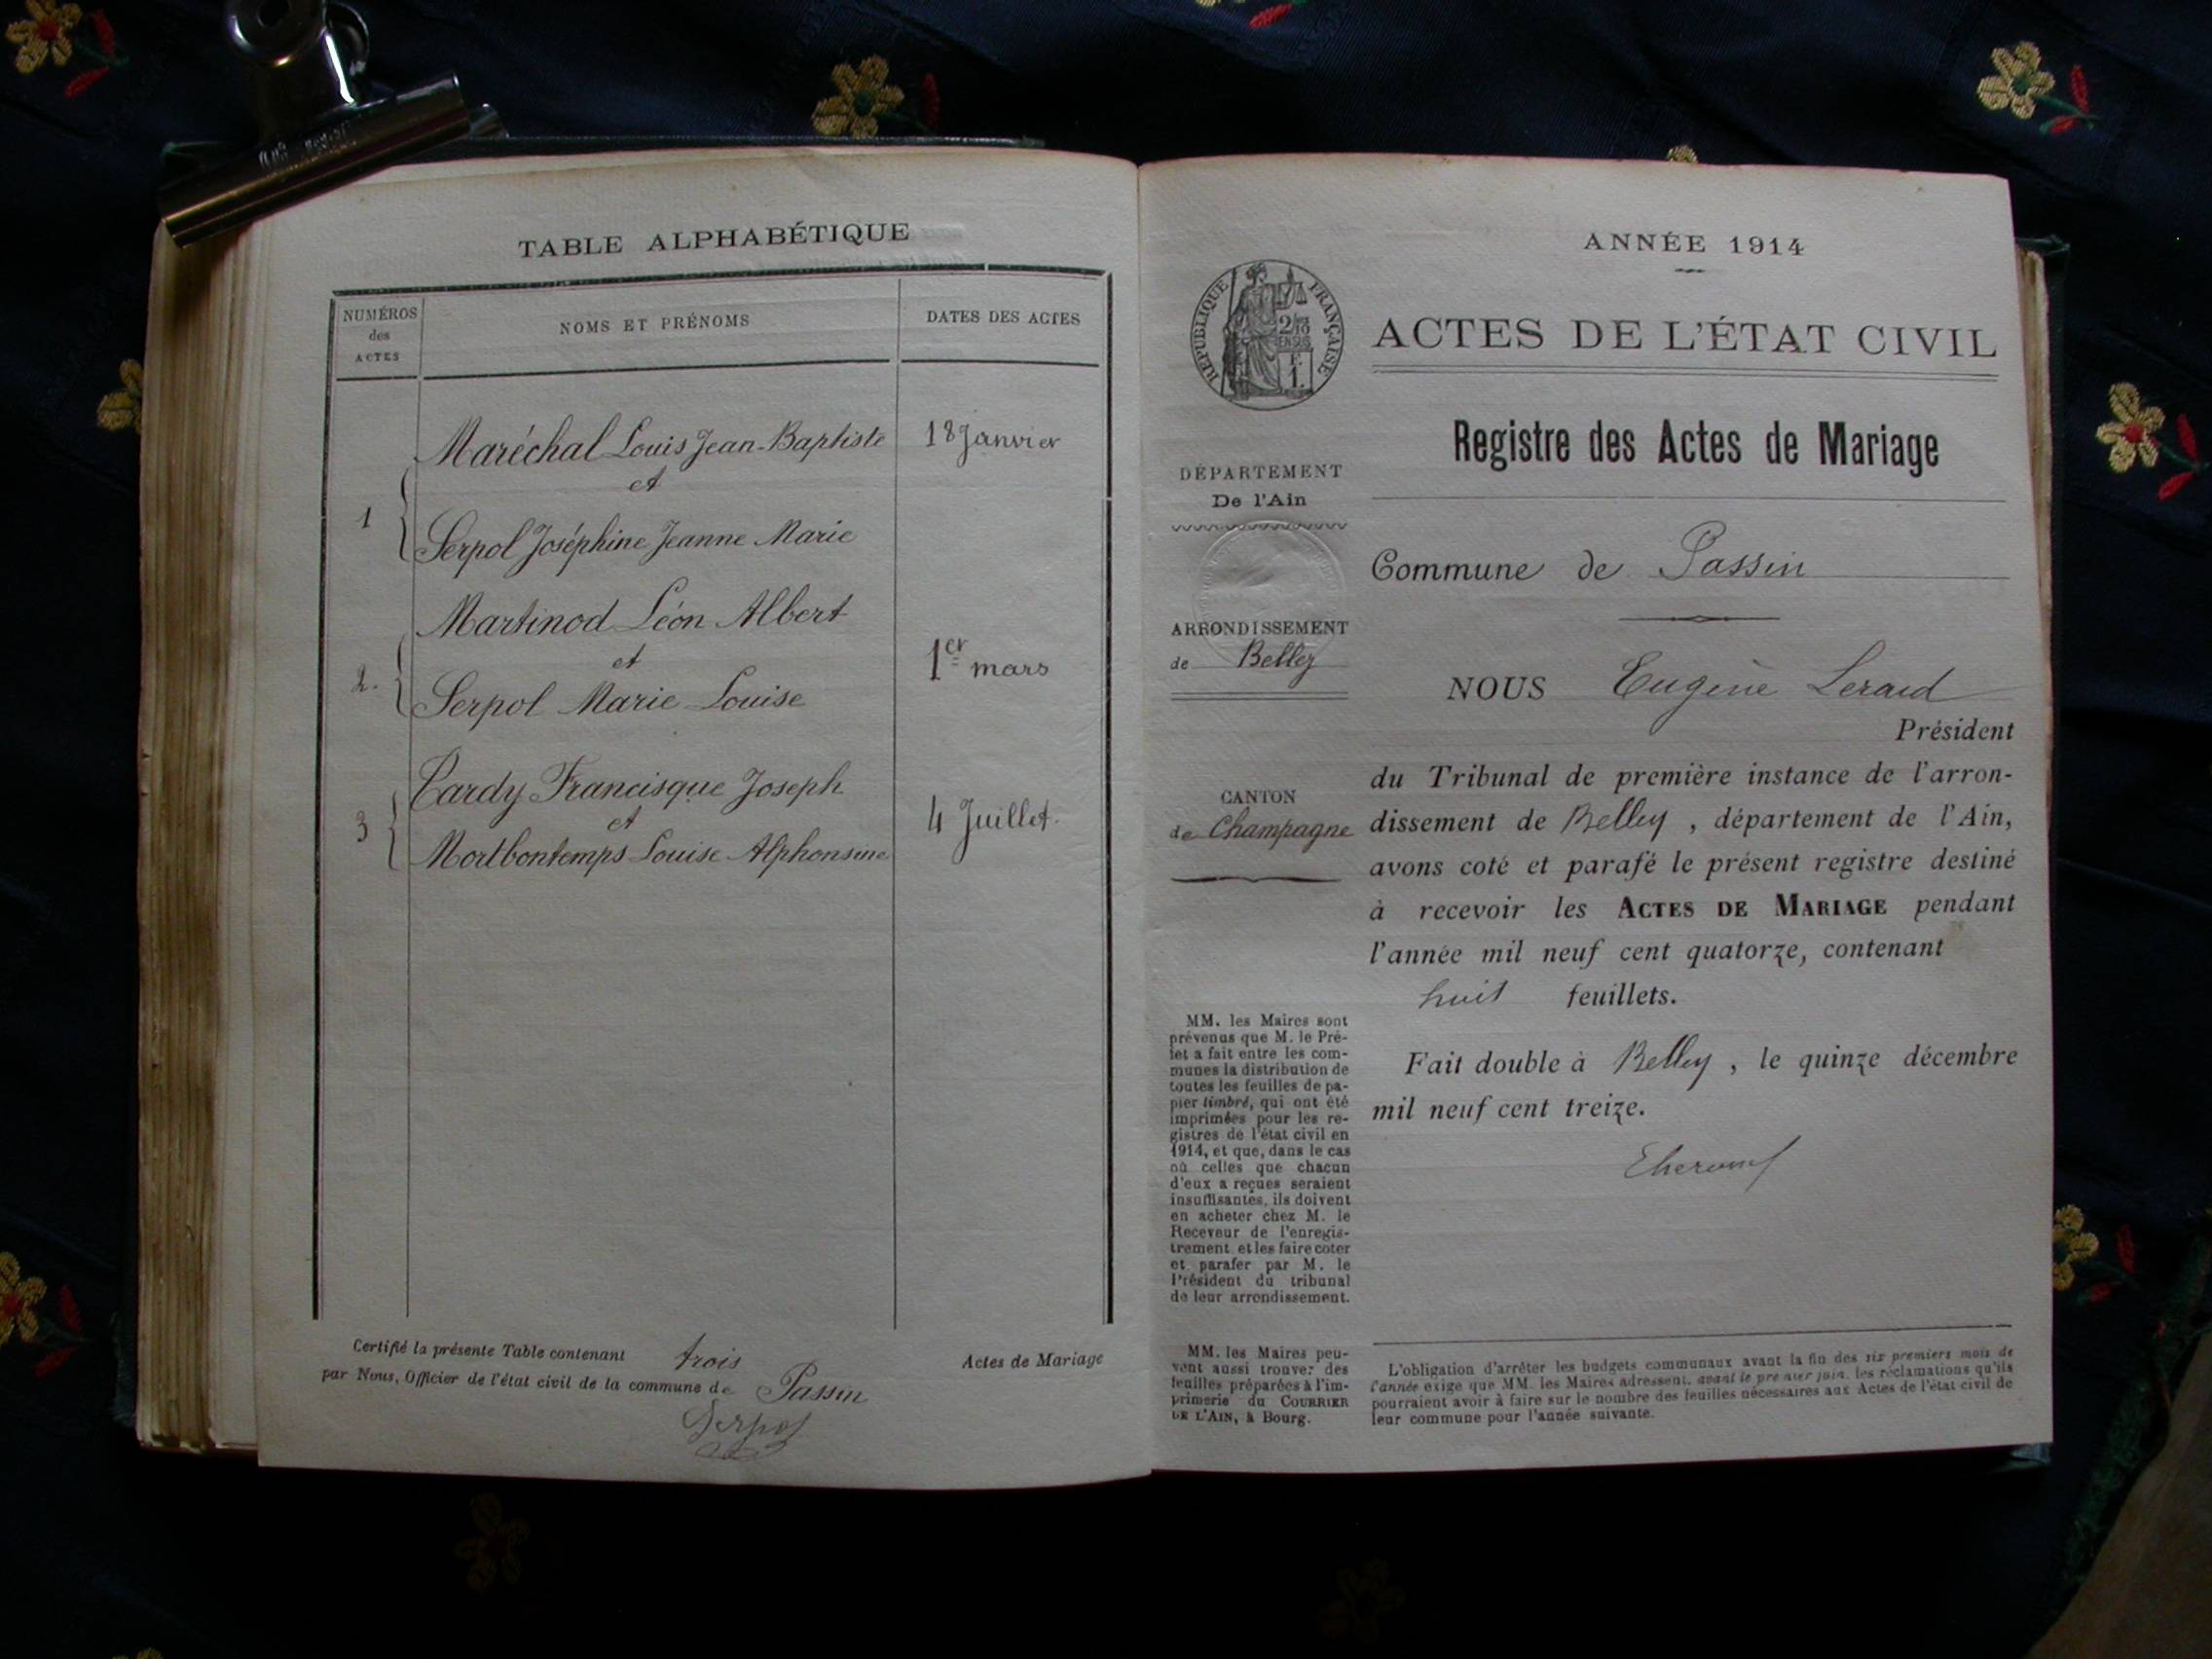 TABLE ALPHABÉTIQUE
NUMÉROS
des
ACTES
NOMS ET PRÉNOMS
DATES DES ACTES
Maréchal Louis Jean-Baptiste
18 Janvier
et
1
Serpol Joséphine Jeanne Marie
Martinod Léon Albert
et
1er mars
2.
Serpol Marie Louise
Pardy Francisque Joseph
et
4 Juillet.
3
Mortbontemps Louise Alphonsine
Certifié la présente Table contenant trois Actes de Mariage
par Nous, Officier de l'état civil de la commune de Passin
Serpol
ANNÉE 1914
RÉPUBLIQUE FRANÇAISE
ACTES DE L'ÉTAT CIVIL
Registre des Actes de Mariage
DÉPARTEMENT
De l'Ain
Commune de Passin
ARRONDISSEMENT
de Belley
CANTON
de Champagne
NOUS Eugène
Président
du Tribunal de première instance de l'arron-
dissement de Belley, département de l'Ain,
avons coté et parafé le présent registre destiné
à recevoir les ACTES DE MARIAGE pendant
l'année mil neuf cent quatorze, contenant
huit feuillets.
Fait double à Belley, le quinze décembre
mil neuf cent treize.
MM. les Maires sont
prévenus que M. le Pré-
fet a fait entre les com-
munes la distribution de
toutes les feuilles de pa-
pier timbré, qui ont été
imprimées pour les re-
gistres de l'état civil en
1914, et que, dans le cas
où celles que chacun
d'eux a reçues seraient
insuffisantes, ils doivent
en acheter chez M. le
Receveur de l'enregis-
trement et les faire coter
et parafer par M. le
Président du tribunal
de leur arrondissement.
MM. les Maires peu-
vent aussi trouver des
feuilles préparées à l'im-
primerie du COURRIER
DE L'AIN, à Bourg.
L'obligation d'arrêter les budgets communaux avant la fin des six premiers mois de
l'année exige que MM. les Maires adressent, avant le premier juin, les réclamations qu'ils
pourraient avoir à faire sur le nombre des feuilles nécessaires aux Actes de l'état civil de
leur commune pour l'année suivante.